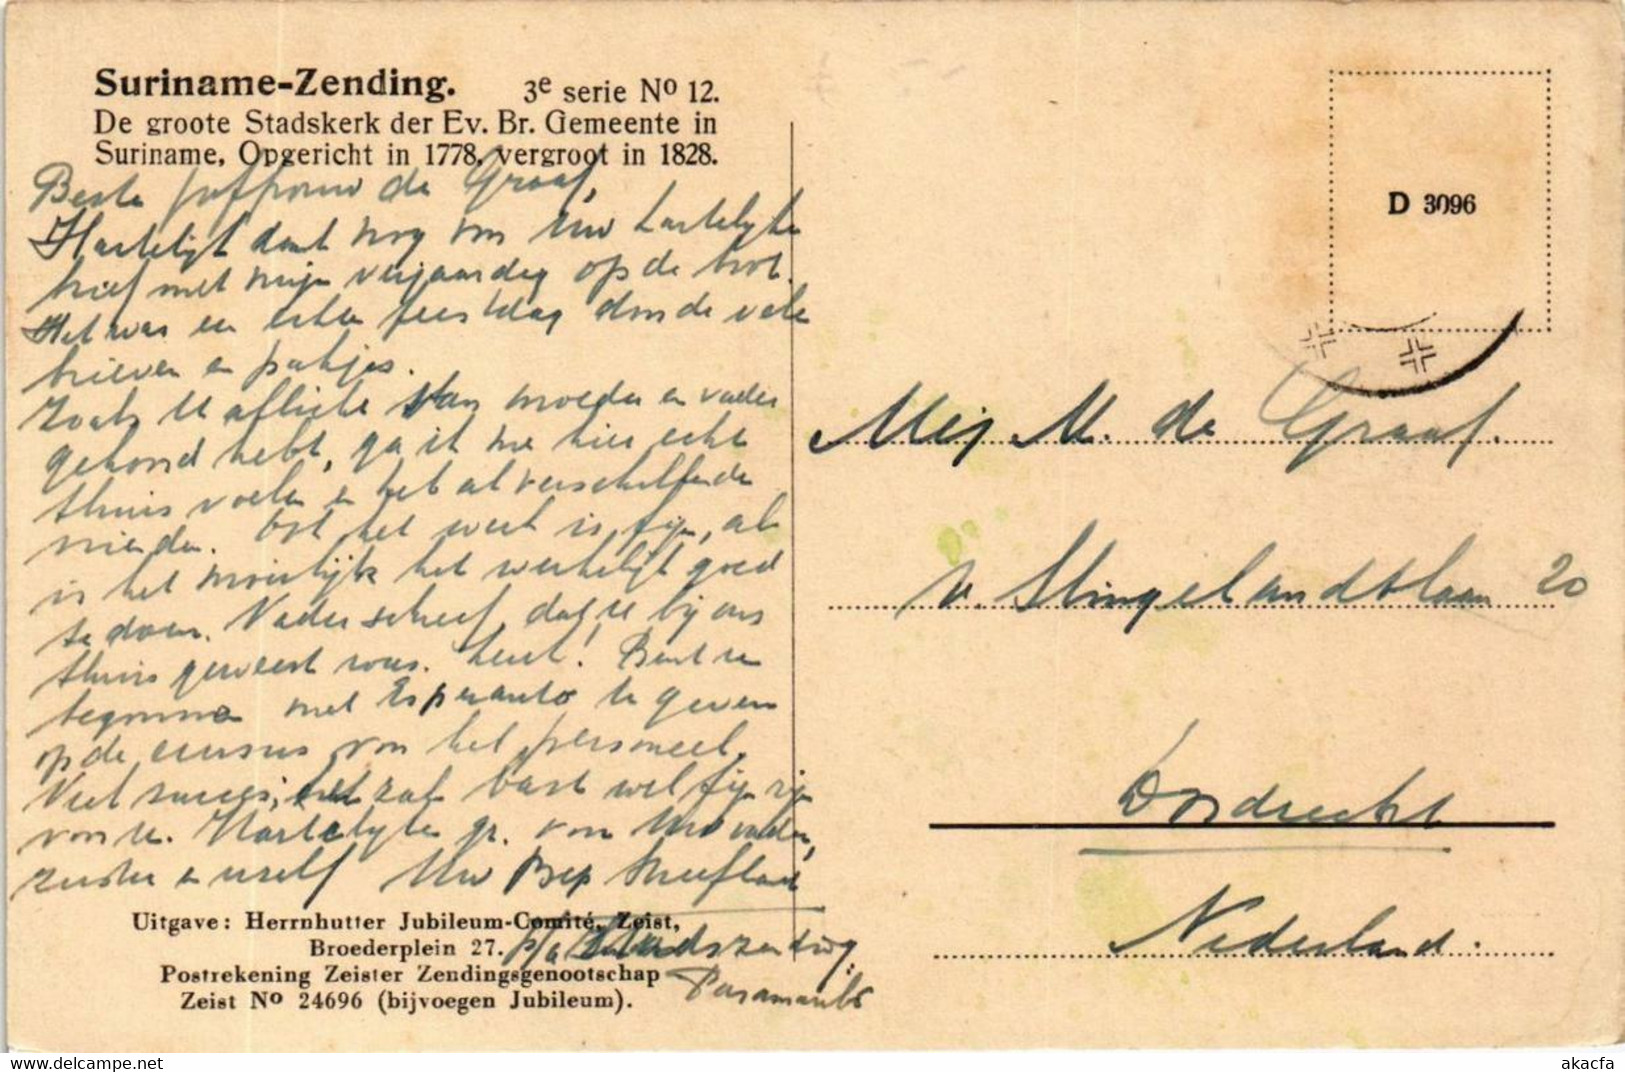 Suriname-Zending. 3e serie No 12.
De groote Stadskerk der Ev. Br. Gemeente in
Suriname, Opgericht in 1778, vergroot in 1828.
Beste Juffrouw de Graaf,
Hartelijk dank nog voor Uw hartelijke
brief met mijn verjaardag op de boot.
Het was een echte feestdag door de vele
brieven en pakjes.
Zoals U allicht van moeder en vader
gehoord hebt, ga ik me hier echt
thuis voelen en heb al verschillende
vrienden. Ook het werk is fijn, al
is het moeilijk het werkelijk goed
te doen. Vader schreef, dat U bij ons
thuis geweest was. Leuk! Bent U
begonnen met Esperanto te geven
op de cursus van het personeel.
Veel succes, het zal vast wel fijn zijn
voor U. Hartelijke gr. voor Uw vader,
zuster en uzelf Uw Bep
Uitgave: Herrnhutter Jubileum-Comité, Zeist,
Broederplein 27. p/a Stadszending,
Postrekening Zeister Zendingsgenootschap Paramaribo
Zeist No 24696 (bijvoegen Jubileum).
D 3096
Mej. M. de Graaf.
v. Slingelandtlaan 20
Dordrecht
Nederland.
akacfa